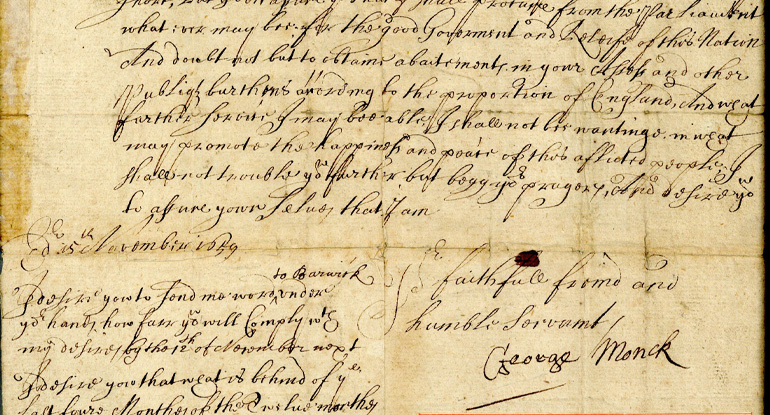 short, but you may assure yo.selves that I shall procure from the Parliament
what ever may bee for the good Goverment and Releife of this Nation
And doubt not but to obtaine abaitements in your Assess and other
Publiq burthens according to the proportion of England, And what
further service I may bee able, I shall not bee wantinge in what
may promote the happines and peace of this afflicted people, I
shall not trouble yow further but begg yor prayers, And desire yow
to assure your selves, that I am
Edr 15th November 1659
Yr faithfull freind and
humble Servant,
George Monck
to Barwick
I desire yow to send me word under
yor hands, how farr yow will Comply wth
my desires, by the 12th of December next
I desire yow that what is behind of ye
last foure Monthes of the Twelve monthes